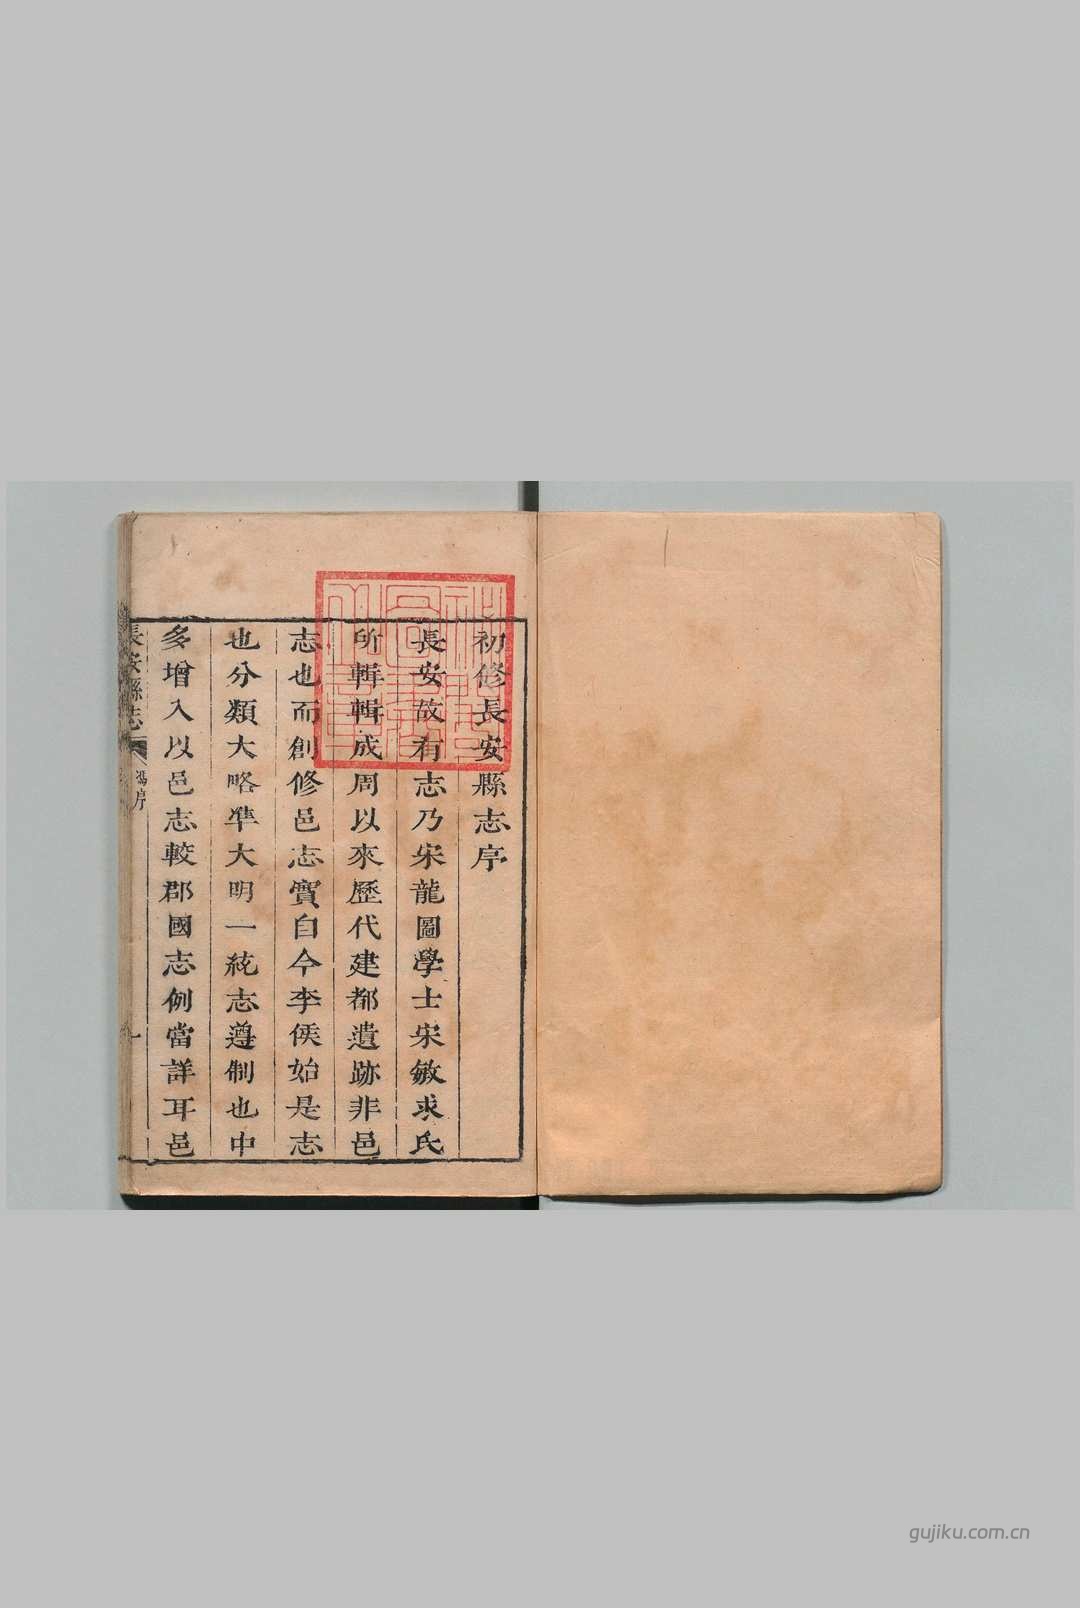 初修長安縣志序
長安故有志乃宋龍圖學士宋敏求氏
所輯輯成周以來歷代建都遺跡非邑
志也而創修邑志實自今李侯始是志
也分類大略準大明一統志遵制也中
多增入以邑志較郡國志例當詳耳邑
長安縣志
馮序
一
gujiku.com.cn